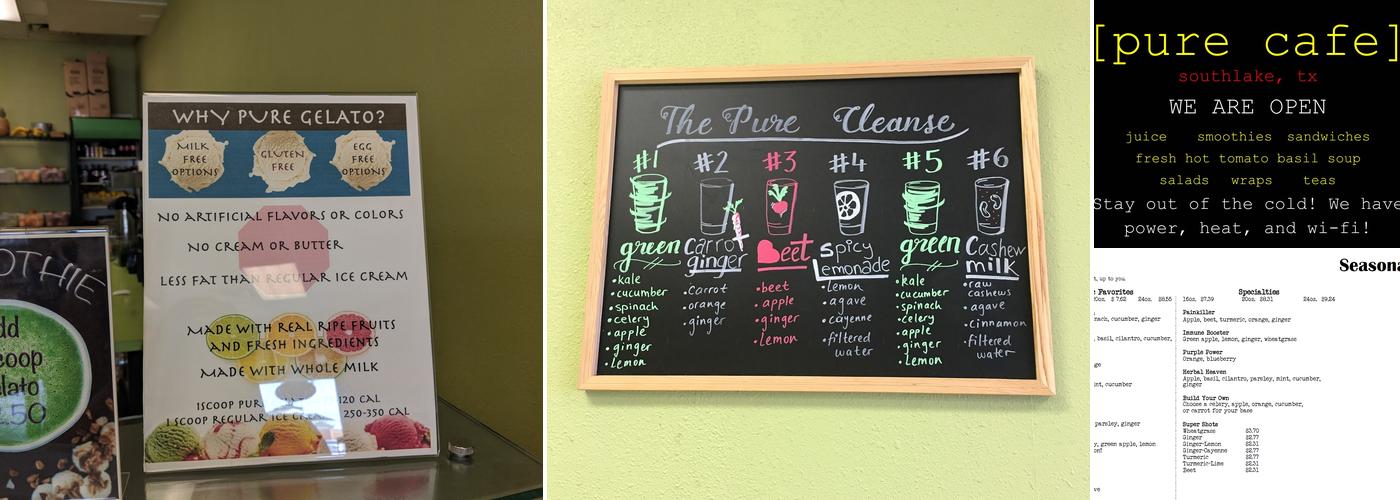 WHY PURE GELATO?
MILK FREE OPTIONS
GLUTEN FREE
EGG FREE OPTIONS
NO ARTIFICIAL FLAVORS OR COLORS
NO CREAM OR BUTTER
LESS FAT THAN REGULAR ICE CREAM
MADE WITH REAL RIPE FRUITS
AND FRESH INGREDIENTS
MADE WITH WHOLE MILK
1 SCOOP PUR 120 CAL
1 SCOOP REGULAR ICE CREAM 250-350 CAL
The Pure Cleanse
#1
green
•kale
•cucumber
•spinach
•celery
•apple
•ginger
•lemon
#2
carrot
ginger
•carrot
•orange
•ginger
#3
Beet
•beet
•apple
•ginger
•lemon
#4
Spicy
Lemonade
•lemon
•agave
•cayenne
•filtered
water
#5
green
•kale
•cucumber
•spinach
•celery
•apple
•ginger
•lemon
#6
Cashew
milk
•raw
cashews
•agave
•cinnamon
•filtered
water
[pure cafe]
southlake, tx
WE ARE OPEN
juice smoothies sandwiches
fresh hot tomato basil soup
salads wraps teas
Stay out of the cold! We have
power, heat, and wi-fi!
t, up to you
Favorites
24oz. $8.55
cucumber, ginger
basil, cilantro, cucumber,
cucumber
parsley, ginger
green apple, lemon
Specialties
16oz. $7.39 20oz. $8.31 24oz. $9.24
Painkiller
Apple, beet, turmeric, orange, ginger
Immune Booster
Green apple, lemon, ginger, wheatgrass
Purple Power
Orange, blueberry
Herbal Heaven
Apple, basil, cilantro, parsley, mint, cucumber,
ginger
Build Your Own
Choose a celery, apple, orange, cucumber,
or carrot for your base
Super Shots
Wheatgrass $3.70
Ginger $2.77
Ginger-Lemon $2.31
Ginger-Cayenne $2.77
Turmeric $2.77
Turmeric-Lime $2.31
Beet $2.31